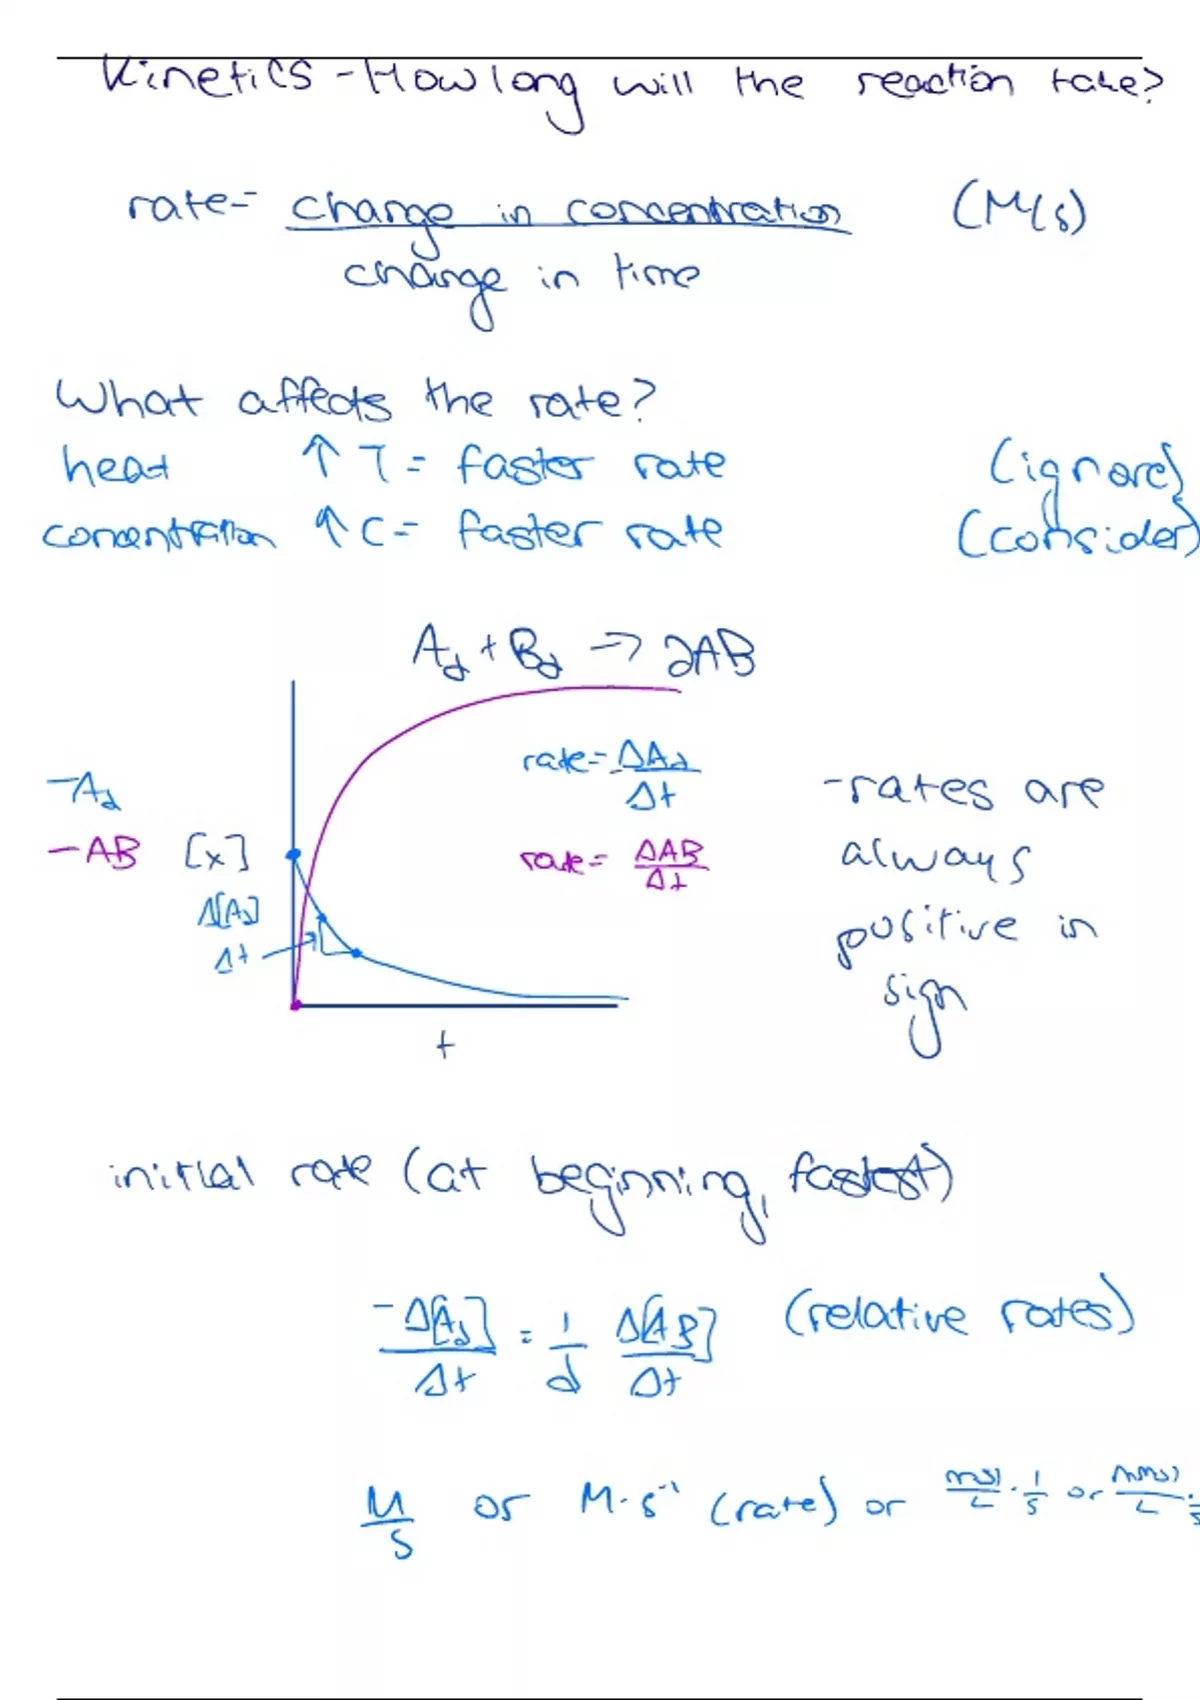 Kinetics - How long will the reaction take?
rate = change in concentration (M/s)
change in time
What affects the rate?
heat ↑ T = faster rate (ignore)
concentration ↑ C = faster rate (consider)
A₂ + B₂ → 2AB
rate = -ΔA₂/Δt
-A₂
-AB [x]
rate = ΔAB/Δt
Δ[A₂]
Δt
t
-rates are
always
positive in
sign
initial rate (at beginning, fastest)
-Δ[A₂]/Δt = 1/2 Δ[AB]/Δt (relative rates)
M/s or M·s⁻¹ (rate) or mol/L · 1/s or mmol/L ·